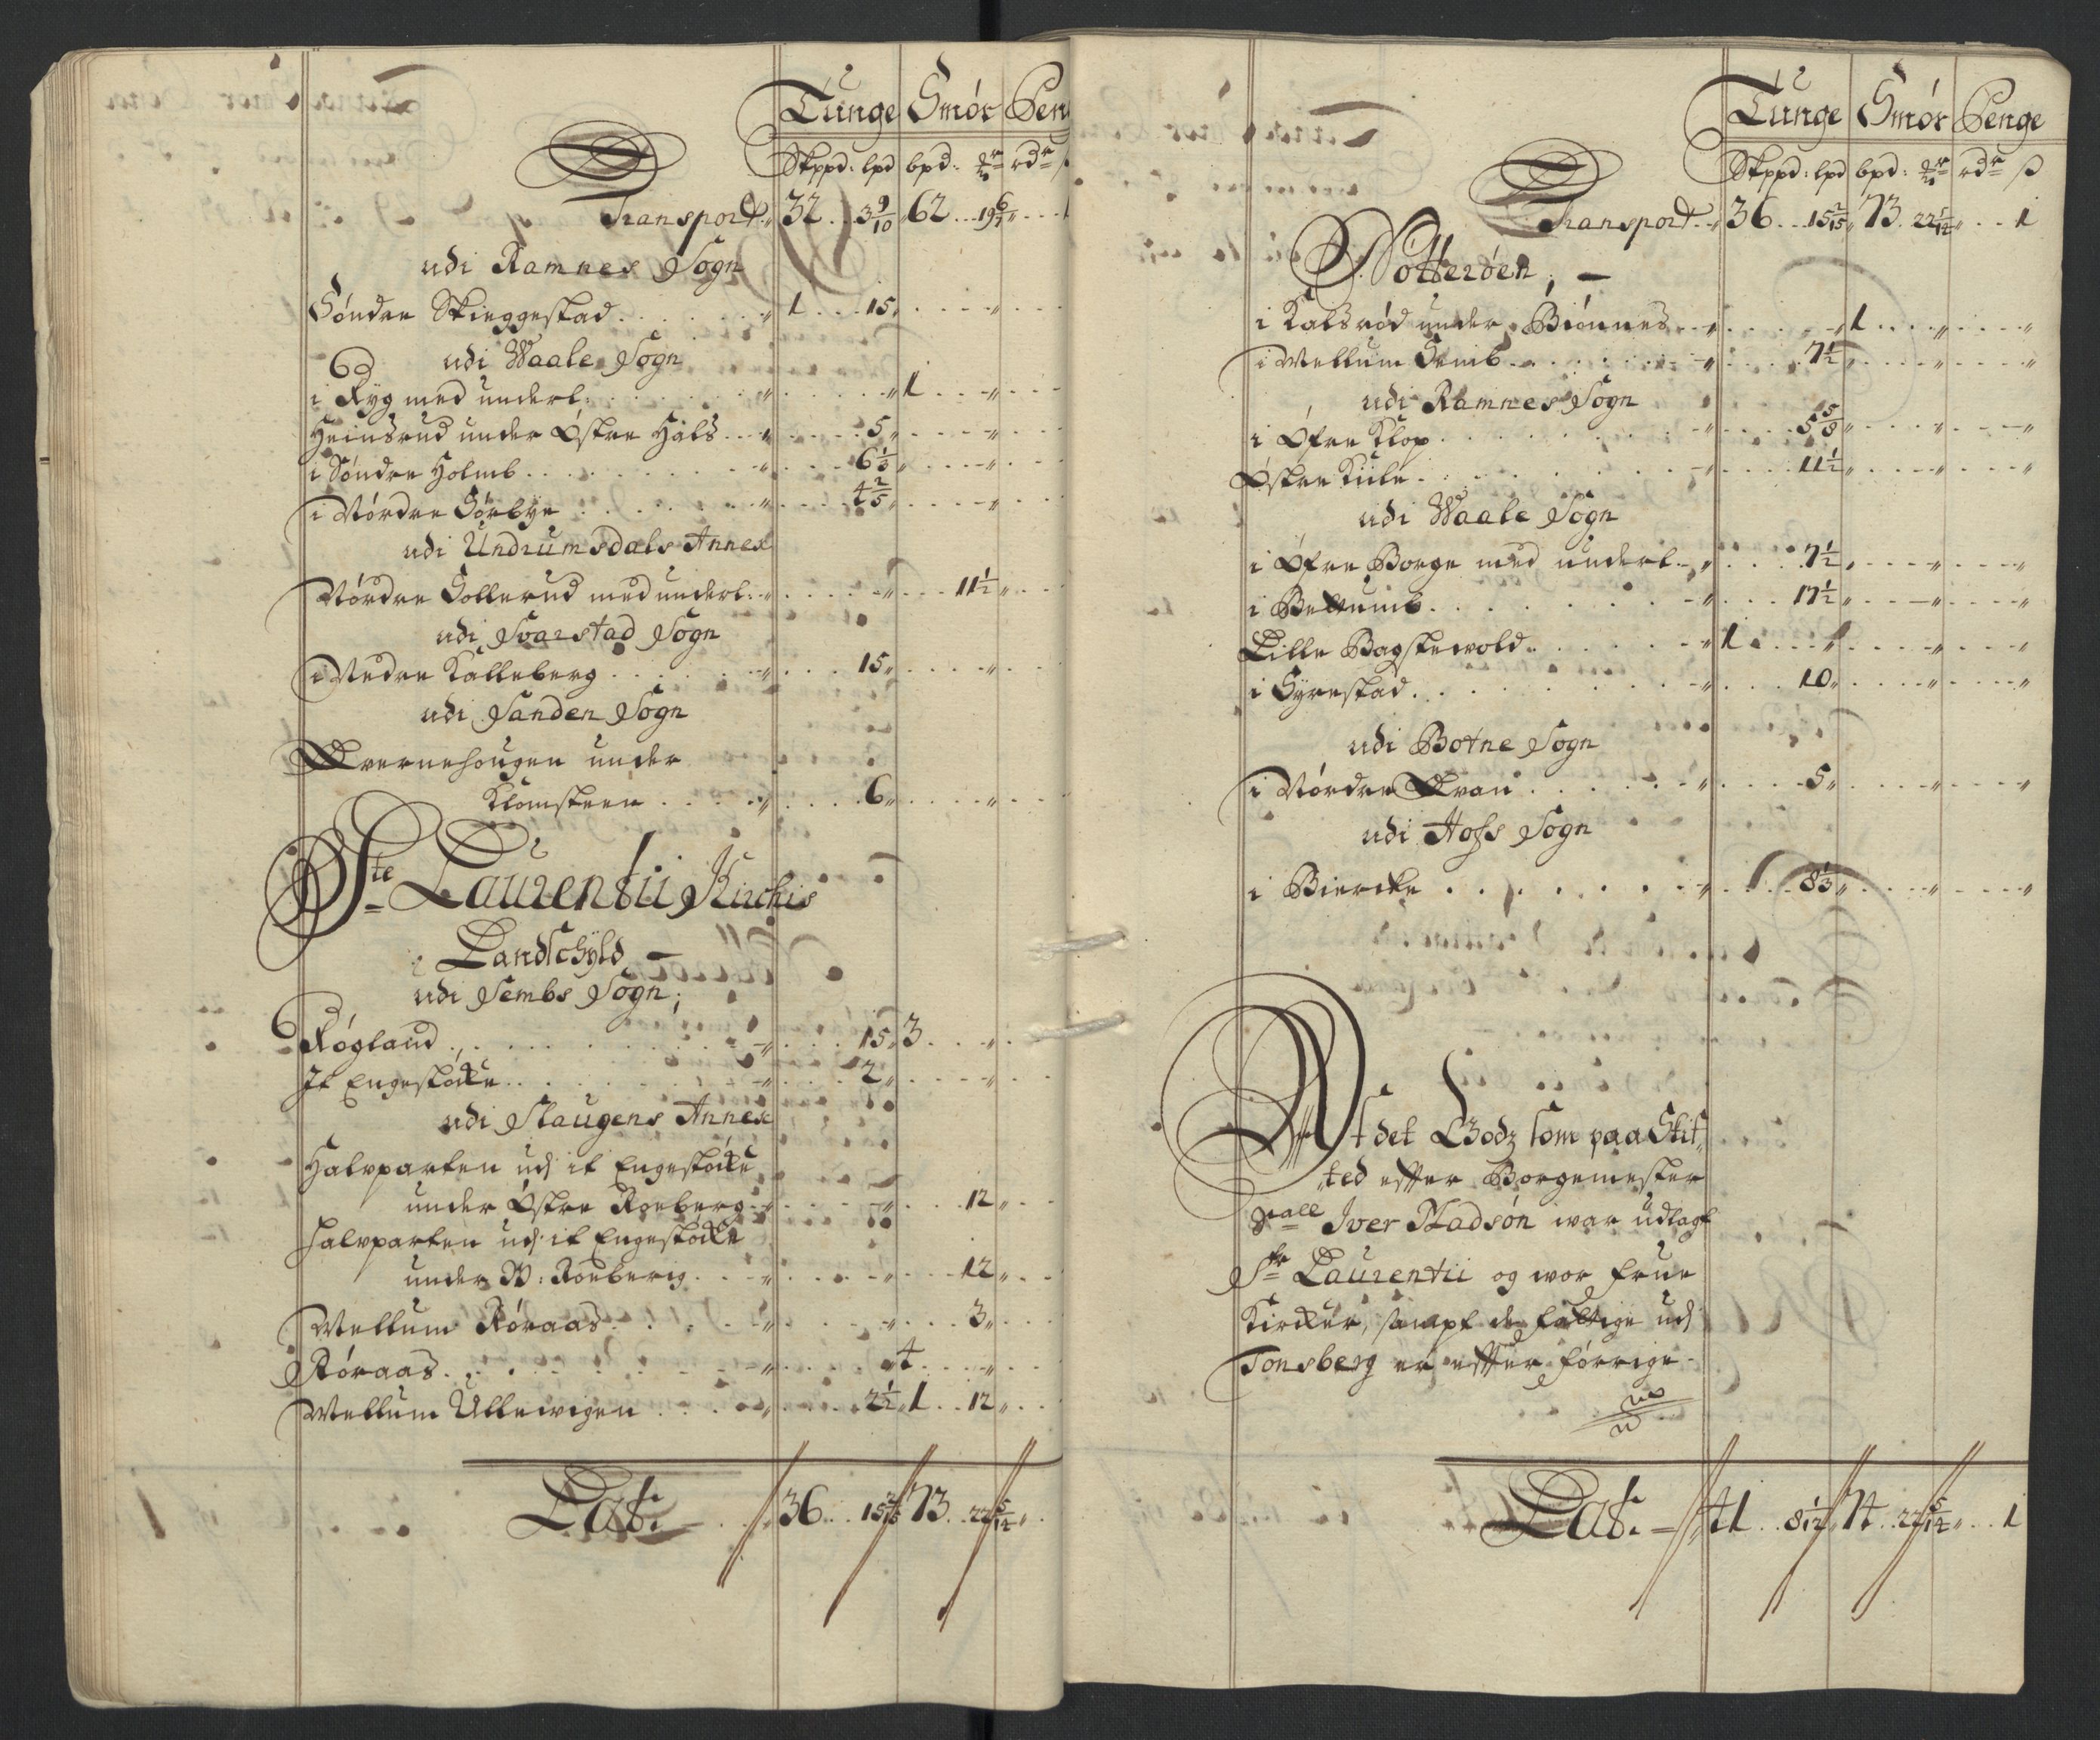 Tunge Smör Pen
Skppd: lpd bpd: mrk rdr
Transport 32 3 9/10 62 19 6/7
udi Ramnes Sogn
Söndre Skieggestad 1 15
udi Waale Sogn
i Ryg med underl: 1
Heinsrud under Östre Hals 5
i Söndre Holmb 6 1/3
i Nördre Sörbye 4 2/5
udi Undrumsdals Annex
Nördre Sollerud med underl: 11 1/2
udi Svarstad Sogn
i Nedre Kalleberg 15
udi Sanden Sogn
Qvernehougen under
Klomsteen 6
Ste Laurentii Kirchis
Landschyld
udi Sembs Sogn;
Rögland 15 3
It Engestöcke 2
udi Slaugens Annex
Halvparten udj it Engestöcke
under Östre Roeberg 12
halvparten udj it Engestöcke
under W: Roeberig 12
Mellum Röraas 3
Röraas 4
Mellum Ullewigen 2 1/2 1 12
Lat: 36 15 2/15 73 22 5/14
Tunge Smör Penge
Skppd: lpd bpd: mrk rdr ß
Transport 36 15 2/15 73 22 5/14 1
Nötteröen;
i Kalsröd under Biönnes 1
i Mellum Semb 7 1/2
udi Ramnes Sogn
i Öfre Klop 5 5/9
Östre Kiile 11 1/2
udi Waale Sogn
i Öfre Borge med underl 7 1/2
i Bettumb 17 1/2
Lille Bagstewold 1
i Gyrestad 10
udi Botne Sogn
i Nördre Qvan 5
udi Hofs Sogn
i Biercke 8 1/3
Af det Godz som paa Skif,,
,,ted effter Borgemester
Sall Iver Madsön war udlagt
Ste Laurentii og wor frue
Kircker, sampt de fattige udj
Tonsberg er effter förrige
Lat: 41 8 1/2 74 22 5/14 1